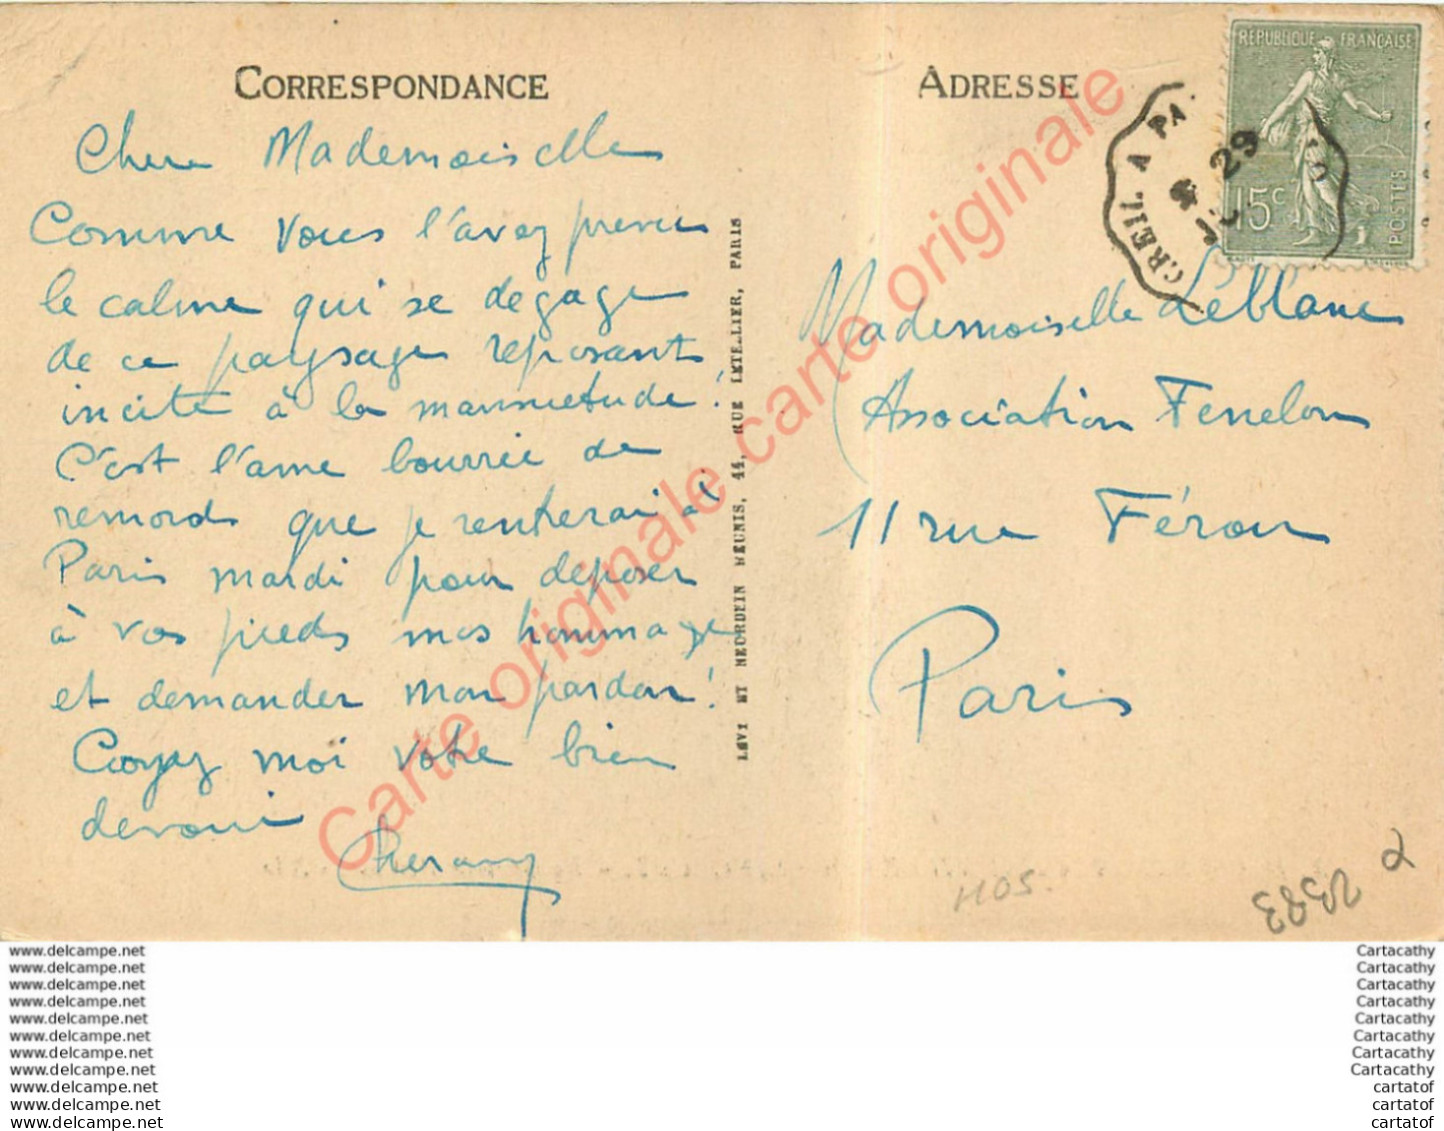 CORRESPONDANCE
Chere Mademoiselle
Comme vous l'avez prevu
le calme qui se degage
de ce paysage reposant
incite à la mansuetude !
C'est l'ame bourrée de
remords que je rentrerai à
Paris mardi pour deposer
à vos pieds mes hommages
et demander mon pardon !
Croyez moi votre bien
devoué
LEVY ET NEURDEIN REUNIS, 44, RUE LETELLIER, PARIS
ADRESSE
REPUBLIQUE FRANÇAISE
15c
POSTES
CREIL A PA
29
Mademoiselle Leblanc
Association Fenelon
11 rue Férou
Paris
H05
2393
Carte originale carte originale carte originale
www.delcampe.net
www.delcampe.net
www.delcampe.net
www.delcampe.net
www.delcampe.net
www.delcampe.net
www.delcampe.net
www.delcampe.net
www.delcampe.net
www.delcampe.net
www.delcampe.net
Cartacathy
Cartacathy
Cartacathy
Cartacathy
Cartacathy
Cartacathy
Cartacathy
Cartacathy
cartatof
cartatof
cartatof